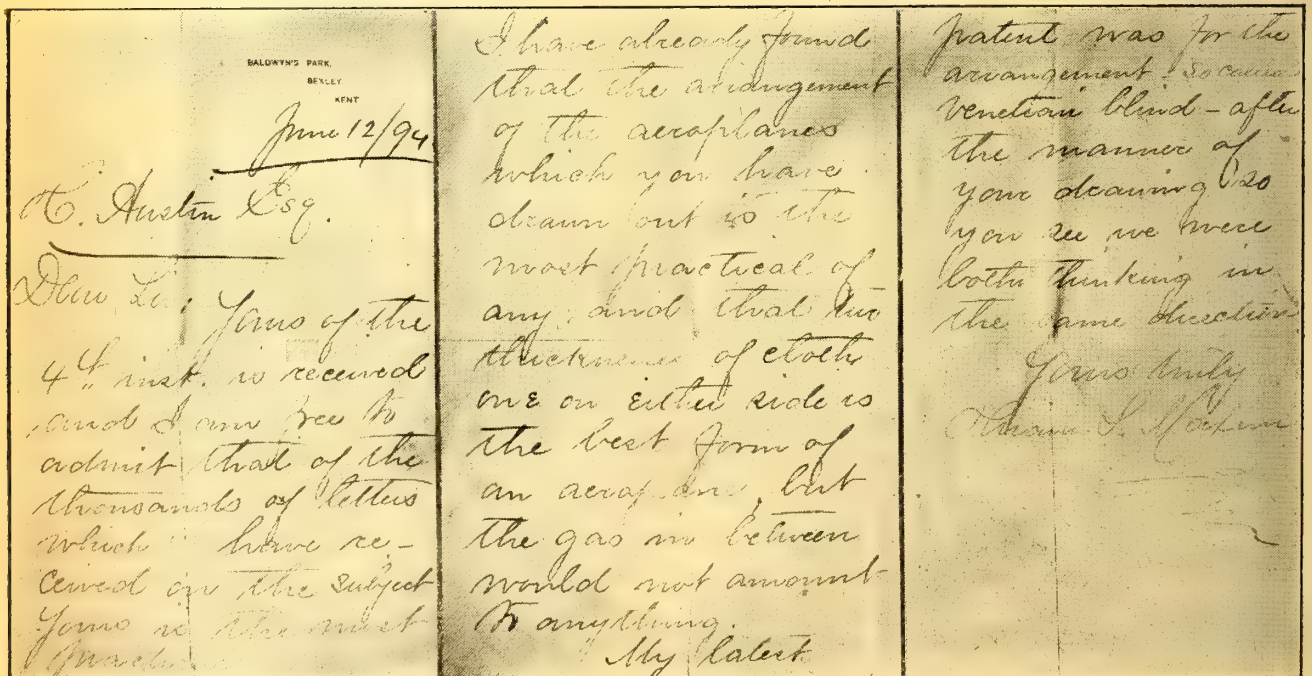 BALDWYN'S PARK,
BEXLEY,
KENT
June 12/94
H. Austin Esq.
Dear Sir:
Yours of the
4th inst. is received
and I am free to
admit that of the
thousands of letters
which I have re-
ceived on the subject
yours is the most
I have already found
that the arrangement
of the aeroplanes
which you have
drawn out is the
most practical of
any, and that two
thicknesses of cloth
one on either side is
the best form of
an aeroplane, but
the gas in between
would not amount
to anything.
My latest
patent was for the
arrangement
venetian blind - after
the manner of
your drawing so
you see we were
both thinking in
the same direction
Yours truly
Hiram S. Maxim